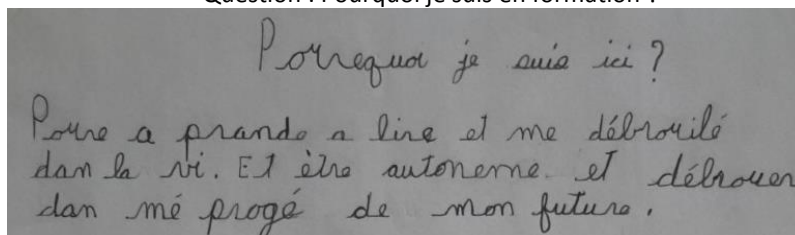 Question : Pourquoi je suis en formation ?
Pourequoi je suis ici ?
Poure a prande a lire et me débrouilé
dan la vi. Et être autoneme. et débrouer
dan mé progé de mon future.